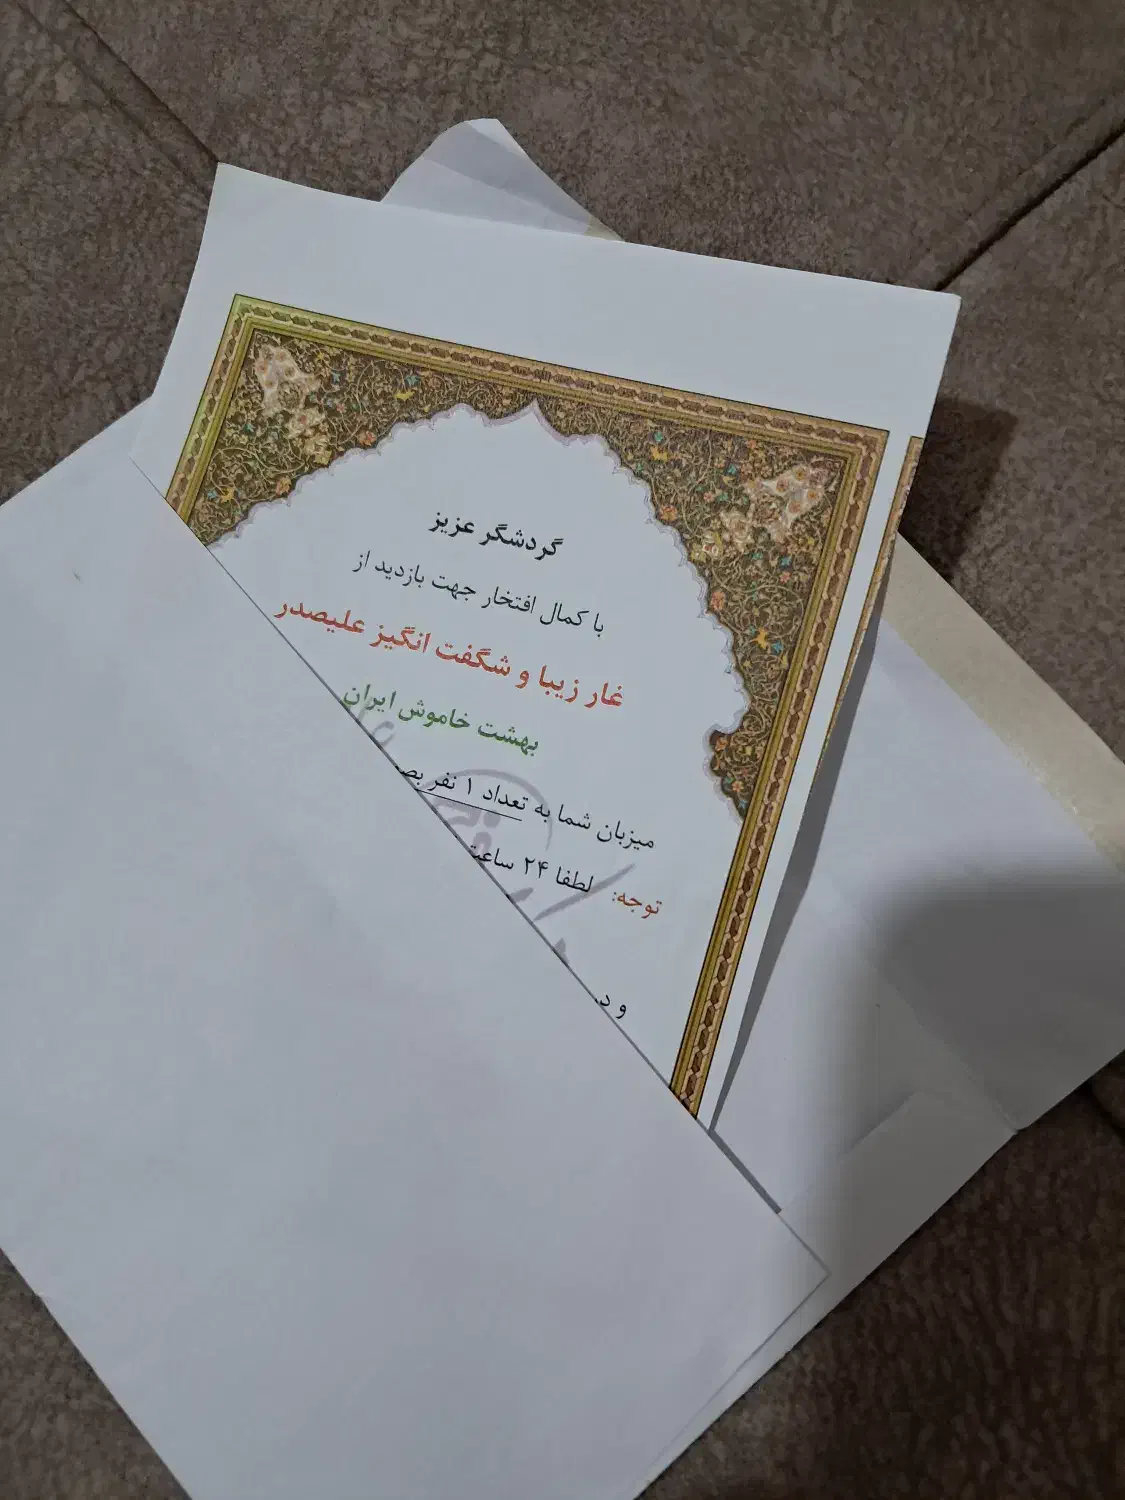 گردشگر عزیز
با کمال افتخار جهت بازدید از
غار زیبا و شگفت انگیز علیصدر
بهشت خاموش ایران
میزبان شما به تعداد ۱ نفر بصـ
توجه: لطفا ۲۴ ساعت
و د